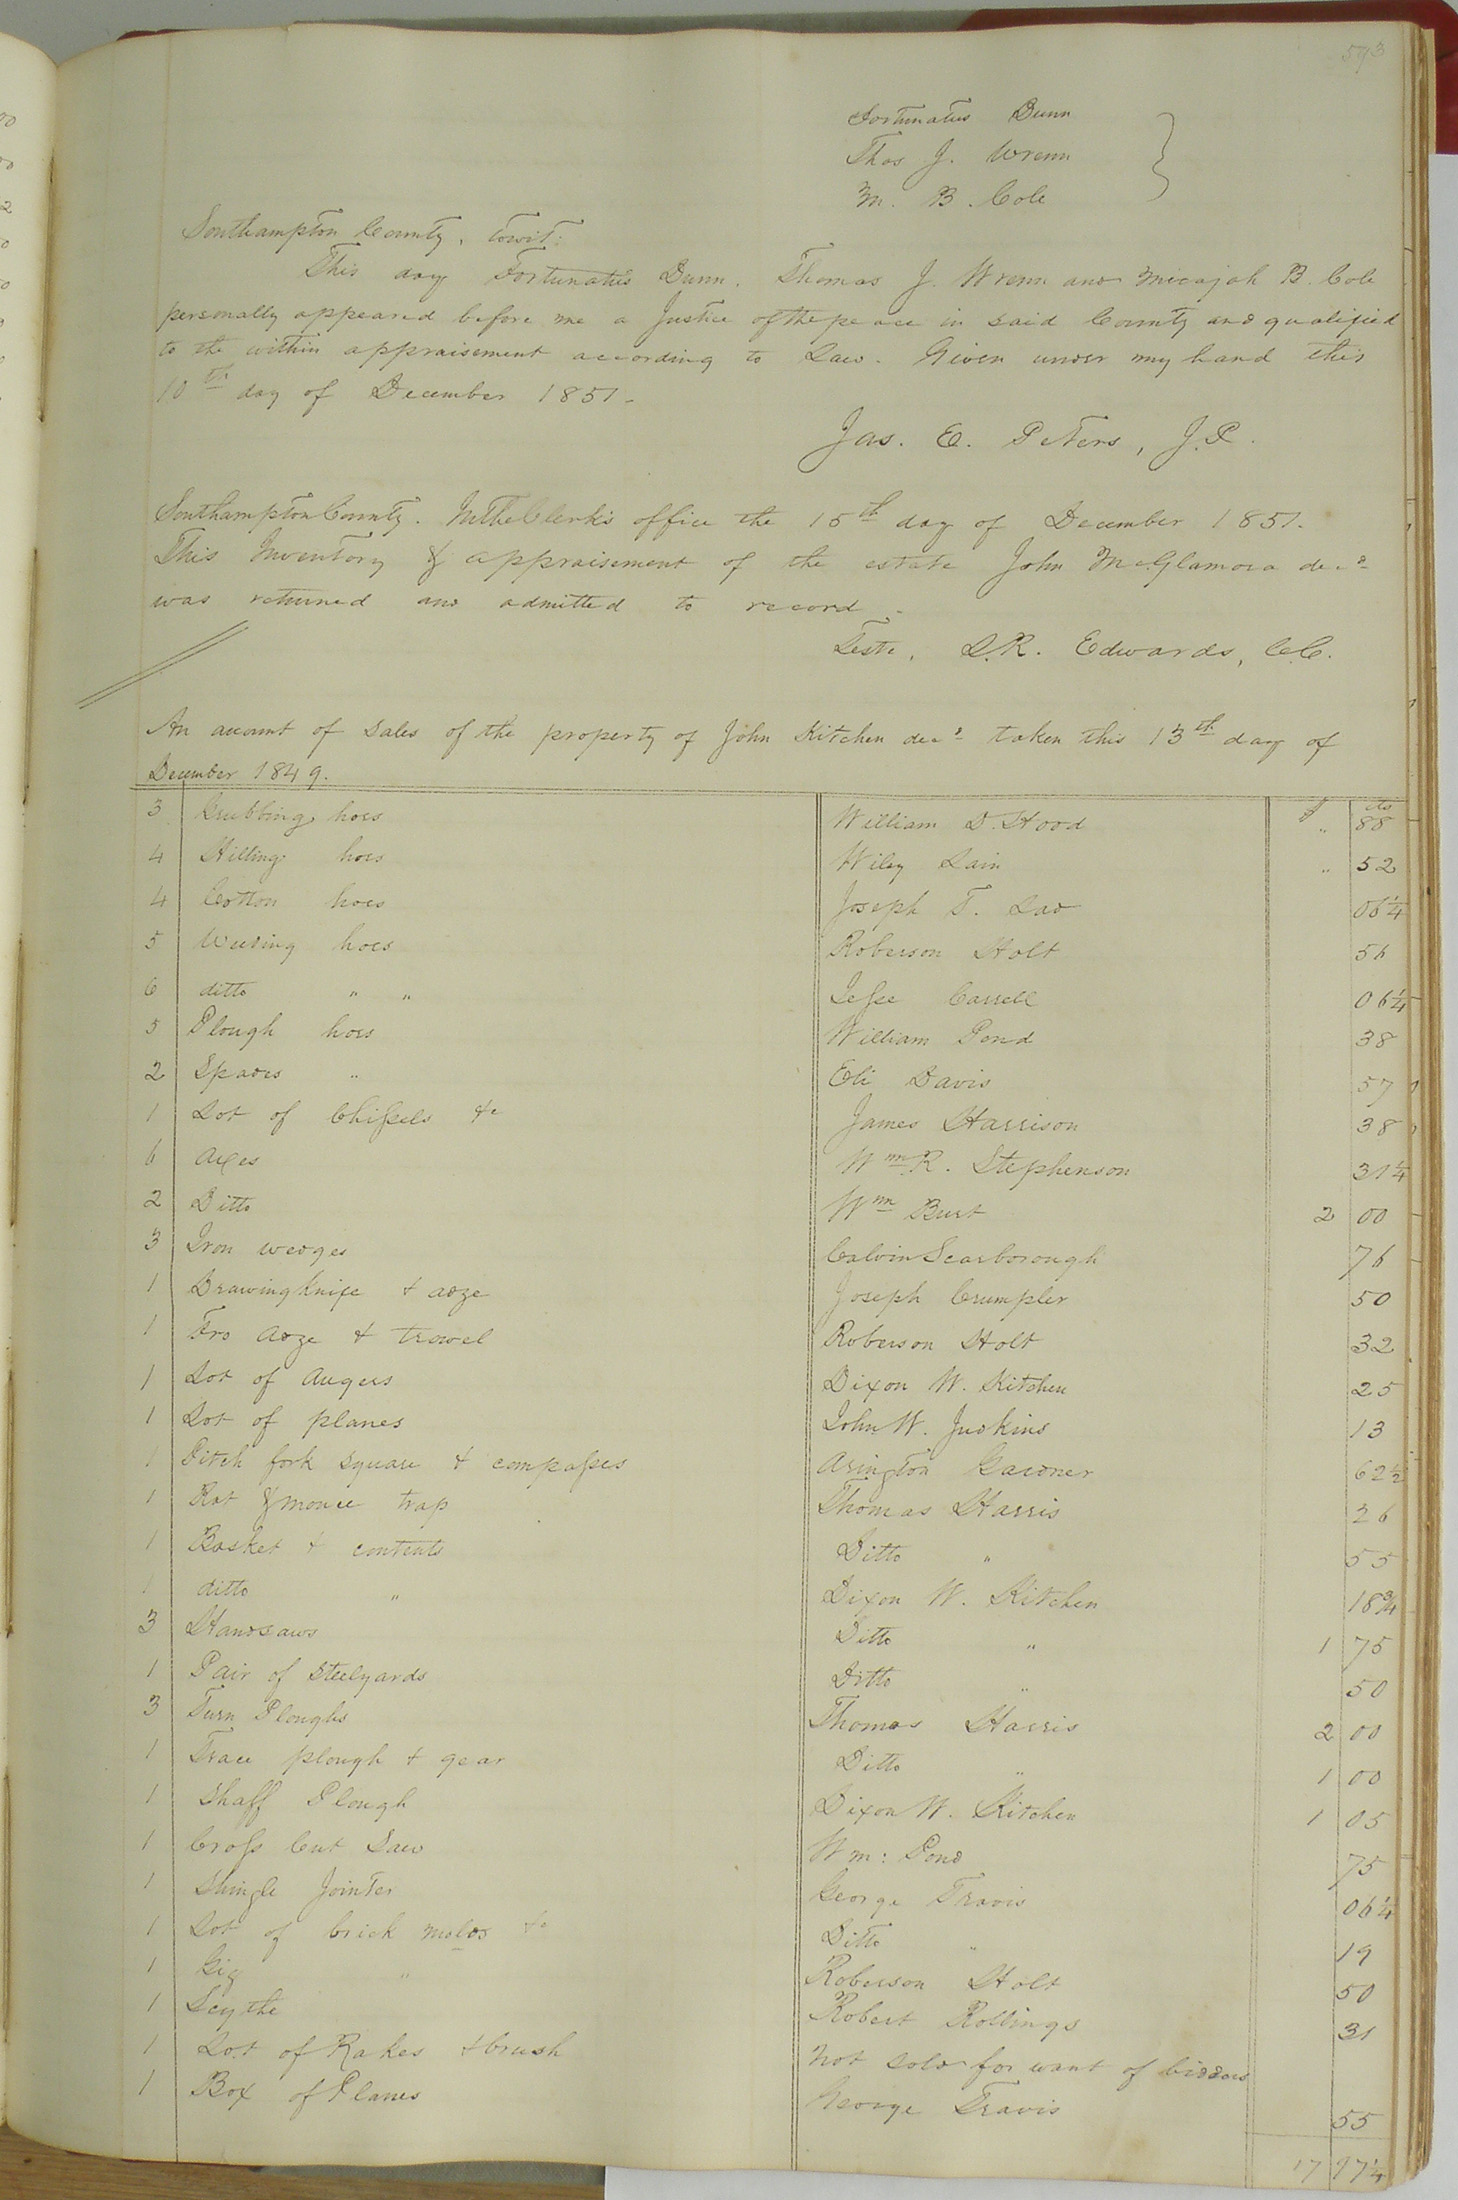 593
Fortunatus Dunn
Thos J. Wrenn
M. B. Cole
Southampton County, towit:
This day Fortunatus Dunn, Thomas J. Wrenn and Micajah B. Cole
personally appeared before me a Justice of the peace in said County and qualified
to the within appraisement according to Law. Given under my hand this
10th day of December 1851.
Jas. E. Peters, J.P.
Southampton County. In the Clerk's office the 15th day of December 1851.
This Inventory & appraisement of the estate John McGlamora decd
was returned and admitted to record.
Teste, L.R. Edwards, C.C.
An account of sales of the property of John Kitchen decd taken this 13th day of
December 1849.
$ cts
3 Grubbing hoes William D. Hood " 88
4 Hilling hoes Wiley Lain " 52
4 Cotton hoes Joseph T. Lad 06 1/4
5 Weeding hoes Roberson Holt 56
6 ditto " " Jesse Carrell 06 1/4
5 Plough hoes William Pond 38
2 Spades " Eli Davis 57
1 Lot of Chissels &c James Harrison 38
6 Axes Wm R. Stephenson 31 1/4
2 Ditto Wm Burt 2 00
3 Iron wedges Calvin Scarborough 76
1 Drawing Knife & adze Joseph Crumpler 50
1 Fro adze & trowel Roberson Holt 32
1 Lot of Augers Dixon W. Kitchen 25
1 Lot of planes John W. Judkins 13
1 Pitch fork square & compasses Arington Gardner 62 1/2
1 Rat & mouce trap Thomas Harris 26
1 Basket & contents Ditto " 55
1 ditto " Dixon W. Kitchen 18 3/4
3 Handsaws Ditto " 1 75
1 Pair of Steelyards Ditto " 50
3 Turn Ploughs Thomas Harris 2 00
1 Trace plough & gear Ditto " 1 00
1 Shaff Plough Dixon W. Kitchen 1 05
1 Cross Cut Saw Wm: Pond 75
1 Shingle Jointer George Travis 06 1/4
1 Lot of brick molds &c Ditto " 19
1 Gig " Roberson Holt 50
1 Scythe Robert Rollings 31
1 Lot of Rakes & brush Not sold for want of bidders
1 Box of Planes George Travis 55
17 97 1/4